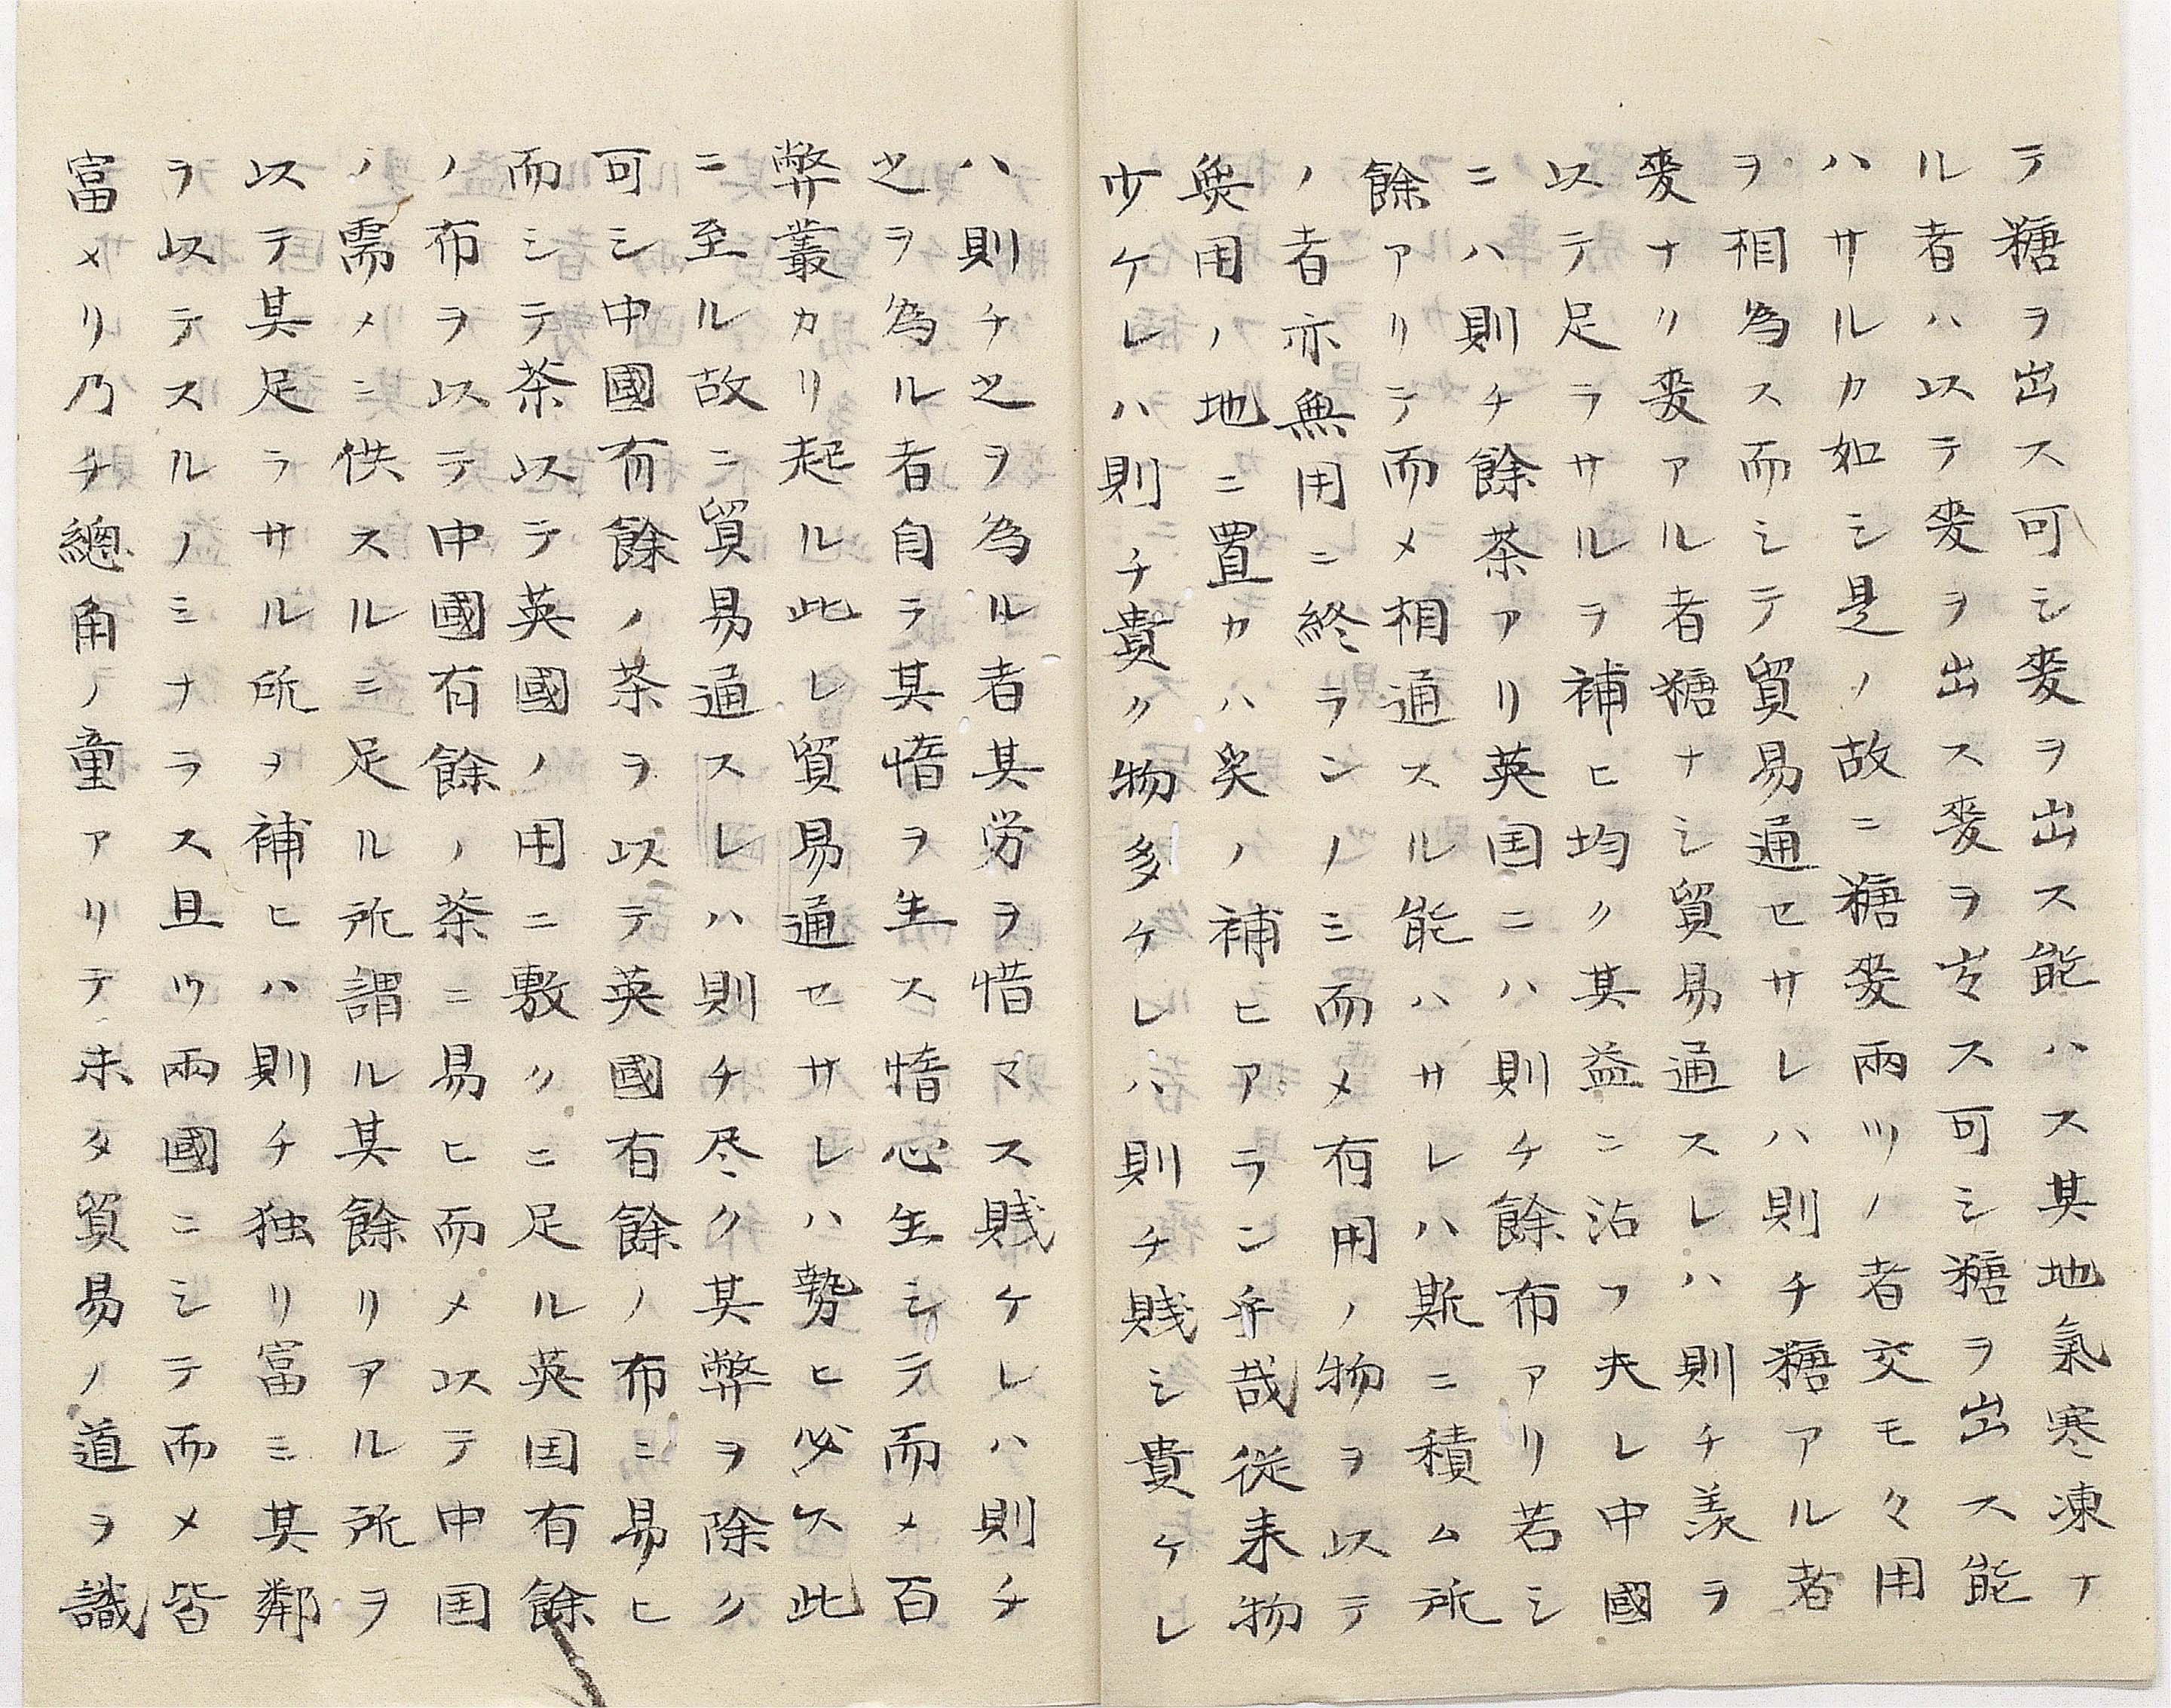 テ糖ヲ出ス可シ麦ヲ出ス能ハス其地氣寒凍ナ
ル者ハ以テ麦ヲ出ス麦ヲ出ス可シ糖ヲ出ス能
ハサルカ如シ是ノ故ニ糖麦兩ツノ者交モ々用
ヲ相為ス而シテ貿易通セサレハ則チ糖アル者
麦ナク麦アル者糖ナシ貿易通スレハ則チ羨ヲ
以テ足ラサルヲ補ヒ均ク其益ニ沾フ夫レ中國
ニハ則チ餘茶アリ英国ニハ則チ餘布アリ若シ
餘アリテ而メ相通スル能ハサレハ斯ニ積ム所
ノ者亦無用ニ終ランノミ而メ有用ノ物ヲ以テ
無用ハ地ニ置カハ奚ノ補ヒアランヤ哉従来物
少ケレハ則チ貴ク物多ケレハ則チ賎シ貴ケレ
ハ則チ之ヲ為ル者其労ヲ惜マス賎ケレハ則チ
之ヲ為ル者自ラ其惰ヲ生ス惰心生シテ而メ百
弊叢カリ起ル此レ貿易通セサレハ勢ヒ必ス此
ニ至ル故ニ貿易通スレハ則チ尽ク其弊ヲ除ク
可シ中國有餘ノ茶ヲ以テ英國有餘ノ布ニ易ヒ
而シテ茶以テ英國ノ用ニ敷クニ足ル英国有餘
ノ布ヲ以テ中國有餘ノ茶ニ易ヒ而メ以テ中国
ノ需メニ供スルニ足ル所謂ル其餘リアル所ヲ
以テ其足ラサル所ヲ補ヒハ則チ独リ富ミ其鄰
ヲ以テスルノミナラス且ツ兩國ニシテ而メ皆
富メリ乃チ總角ノ童アリテ未タ貿易ノ道ヲ識